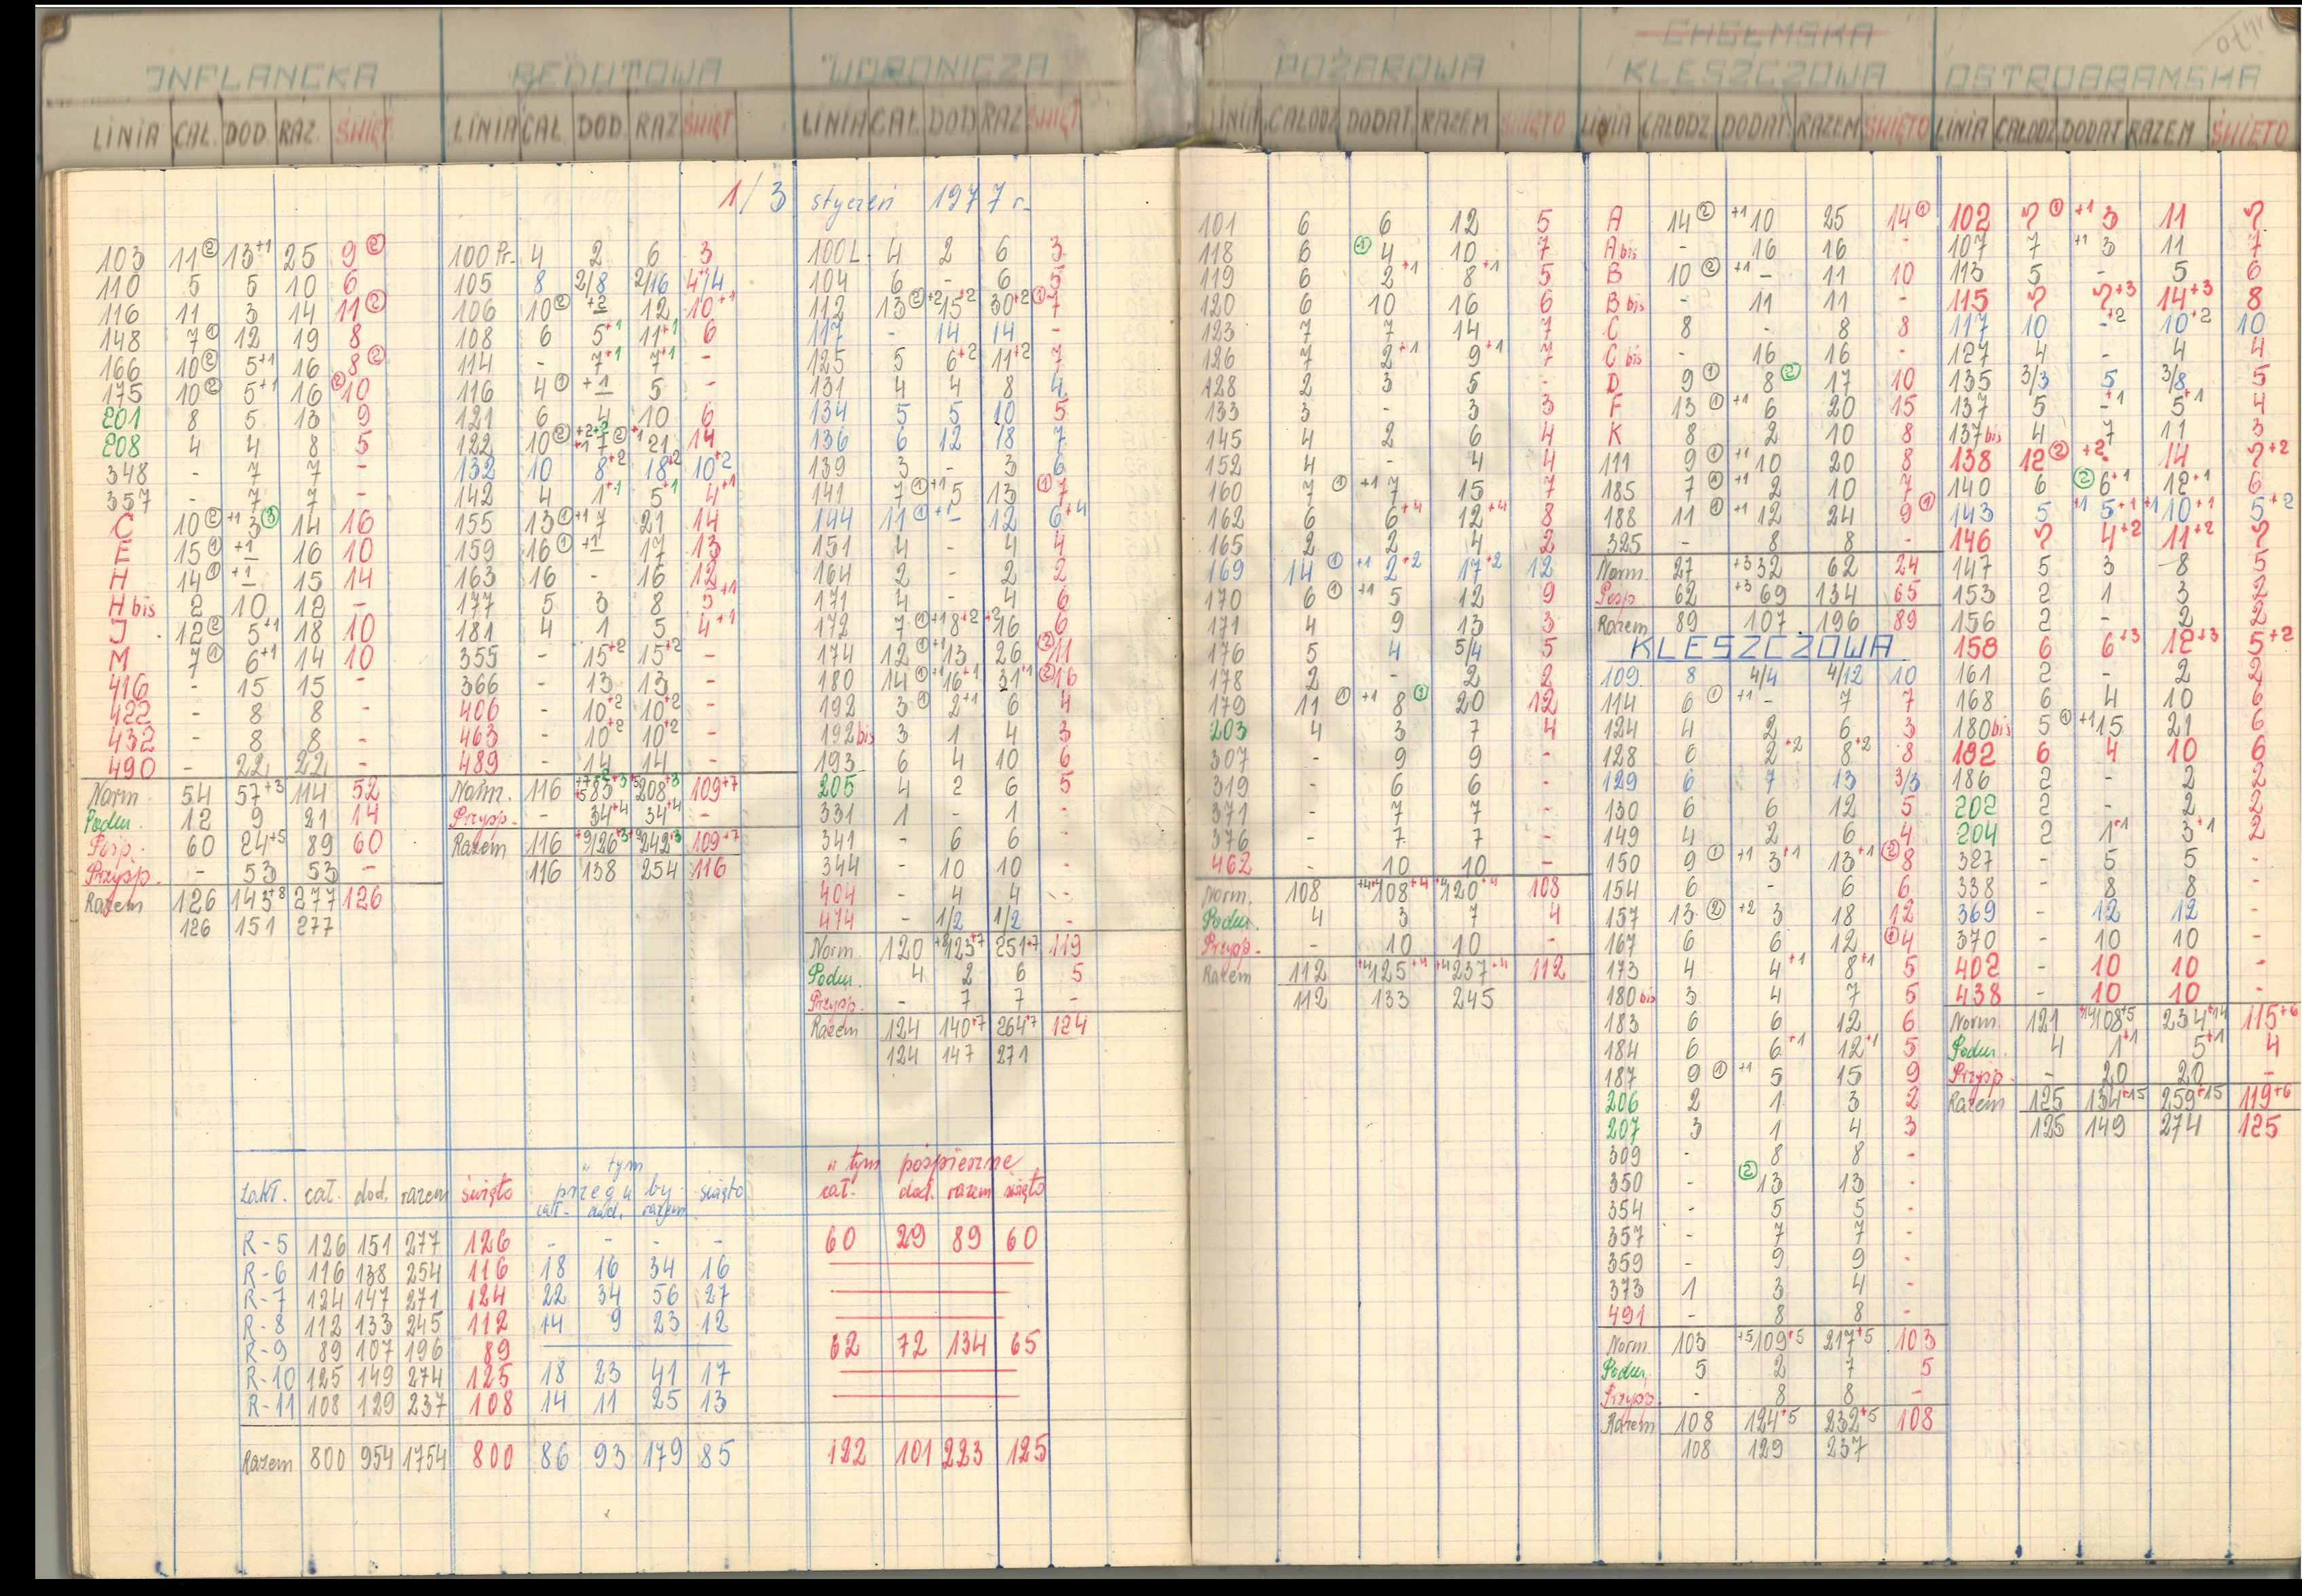 INFLANCKA
LINIA CAŁ. DOD. RAZ. ŚWIĘT.
103 11② 13+1 25 9②
110 5 5 10 6
116 11 3 14 11②
148 7① 12 19 8
166 10② 5+1 16 8②
175 10② 5+1 16 ②10
201 8 5 13 9
208 4 4 8 5
348 - 7 7 -
357 - 7 7 -
C 10② +1 3③ 14 16
E 15① +1 - 16 10
H 14① +1 - 15 14
H bis 2 10 12 -
J 12② 5+1 18 10
M 7① 6+1 14 10
416 - 15 15 -
422 - 8 8 -
432 - 8 8 -
490 - 22 22 -
Norm. 54 57+3 114 52
Podm. 12 9 21 14
Posp. 60 24+5 89 60
Przysp. - 53 53 -
Razem 126 143+8 277 126
126 151 277
REDUTOWA
LINIA CAŁ. DOD. RAZ ŚWIĘT
1/3 styczeń 1977 r.
100 Pr. 4 2 6 3
105 8 2/8 2/16 4/4
106 10② +2 - 12 10+1
108 6 5+1 11+1 6
114 - 7+1 7+1 -
116 4① +1 - 5 -
121 6 4 10 6
122 10② 7② 21 14
132 10 8+2 18+2 10+2
142 4 1+1 5+1 4+1
155 13① +1 7 21 14
159 16① +1 - 17 13
163 16 - 16 12
177 5 3 8 5+1
181 4 1 5 4+1
355 - 15+2 15+2 -
366 - 13 13 -
406 - 10+2 10+2 -
463 - 10+2 10+2 -
489 - 14 14 -
Norm. 116 208+3 109+7
Przysp. - 34+4 34+4 -
Razem 116 +9 126+3 242+3 109+7
116 138 254 116
WORONICZA
LINIA CAŁ. DOD RAZ ŚWIĘT.
100 L. 4 2 6 3
104 6 - 6 5
112 13② +2 15+2 30+2 ①7
117 - 14 14 -
125 5 6+2 11+2 7
131 4 4 8 4
134 5 5 10 5
136 6 12 18 7
139 3 - 3 6
141 7① +1 5 13 ①7
144 11① +1 - 12 6+4
151 4 - 4 4
164 2 - 2 2
171 4 - 4 6
172 7① +1 8+2 16 6
174 12① +1 13 26 ②11
180 14① +1 16+1 31+1 ②16
192 3① 2+1 6 4
192 bis 3 1 4 3
193 6 4 10 6
205 4 2 6 5
331 1 - 1 -
341 - 6 6 -
344 - 10 10 -
404 - 4 4 -
474 - 1/2 1/2 -
Norm. 120 +8 123+7 251+7 119
Podm. 4 2 6 5
Przysp. - 7 7 -
Razem 124 140+7 264+7 124
124 147 271
Zakł. cał. dod. razem święto
w tym przegu by - święto
cał. dod. razem
w tym pospieszne
cał. dod. razem święto
R-5 126 151 277 126 - - - - 60 29 89 60
R-6 116 138 254 116 18 16 34 16
R-7 124 147 271 124 22 34 56 27
R-8 112 133 245 112 14 9 23 12
R-9 89 107 196 89 62 72 134 65
R-10 125 149 274 125 18 23 41 17
R-11 108 129 237 108 14 11 25 13
Razem 800 954 1754 800 86 93 179 85 122 101 223 125
POŻAROWA
LINIA CAŁODZ. DODAT. RAZEM ŚWIĘTO
101 6 6 12 5
118 6 4 10 7
119 6 2+1 8+1 5
120 6 10 16 6
123 7 7 14 7
126 7 2+1 9+1 7
128 2 3 5 -
133 3 - 3 3
145 4 2 6 4
152 4 - 4 4
160 7① +1 7 15 7
162 6 6+4 12+4 8
165 2 2 4 2
169 14① +1 2+2 17+2 12
170 6① +1 5 12 9
171 4 9 13 3
176 5 4 5/4 5
178 2 - 2 2
179 11① +1 8① 20 12
203 4 3 7 4
307 - 9 9 -
319 - 6 6 -
371 - 7 7 -
376 - 7 7 -
462 - 10 10 -
Norm. 108 108+4 108
Podm. 4 3 7 4
Przysp. - 10 10 -
Razem 112 +4 125+4 +4 237+4 112
112 133 245
CHEŁMSKA
KLESZCZOWA
LINIA CAŁODZ. DODAT. RAZEM ŚWIĘTO
A 14② +1 10 25 14①
A bis - 16 16 -
B 10② +1 - 11 10
B bis - 11 11 -
C 8 - 8 8
C bis - 16 16 -
D 9① 8② 17 10
F 13① +1 6 20 15
K 8 2 10 8
111 9① +1 10 20 8
185 7① +1 2 10 7
188 11① +1 12 24 9①
325 - 8 8 -
Norm. 27 +3 32 62 24
Posp. 62 +3 69 134 65
Razem 89 107 196 89
KLESZCZOWA
109 8 4/4 4/12 10
114 6① +1 - 7 7
124 4 2 6 3
128 6 2+2 8+2 8
129 6 7 13 3/3
130 6 6 12 5
149 4 2 6 4
150 9① +1 3+1 13+1 ②8
154 6 - 6 6
157 13② +2 3 18 12
167 6 6 12 ①4
173 4 4+1 8+1 5
180 bis 3 4 7 5
183 6 6 12 6
184 6 6+1 12+1 5
187 9① +1 5 15 9
206 2 1 3 2
207 3 1 4 3
309 - 8 8 -
350 - ②13 13 -
354 - 5 5 -
357 - 7 7 -
359 - 9 9 -
373 1 3 4 -
491 - 8 8 -
Norm. 103 +5 109+5 217+5 103
Podm. 5 2 7 5
Przysp. - 8 8 -
Razem 108 124+5 232+5 108
108 129 237
OSTROBRAMSKA
LINIA CAŁODZ DODAT RAZEM ŚWIĘTO
102 7① +1 3 11 7
107 7 +1 3 11 7
113 5 - 5 6
115 7 7+3 14+3 8
117 10 -+2 10+2 10
127 4 - 4 4
135 3/3 5 3/8 5
137 5 -+1 5+1 4
137 bis 4 7 11 3
138 12② +2 - 14 7+2
140 6 ②6+1 12+1 6
143 5 +1 5+1 +1 10+1 5+2
146 7 4+2 11+2 7
147 5 3 8 5
153 2 1 3 2
156 2 - 2 2
158 6 6+3 12+3 5+2
161 2 - 2 2
168 6 4 10 6
180 bis 5① +1 15 21 6
182 6 4 10 6
186 2 - 2 2
202 2 - 2 2
204 2 1+1 3+1 2
327 - 5 5 -
338 - 8 8 -
369 - 12 12 -
370 - 10 10 -
402 - 10 10 -
438 - 10 10 -
Norm. 121 108+5 234+14 115+6
Podm. 4 1+1 5+1 4
Przysp. - 20 20 -
Razem 125 134+15 259+15 119+6
125 149 274 125